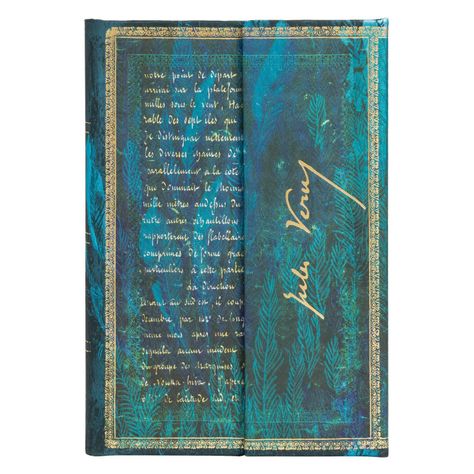 notre point de départ
arrimé sur la plateform
milles sous le vent, Ha
rable des sept iles qui
Je distinguai nettement
les diverses chaines de
parallèlement à la côte
que dominait le Mouna
mille mètres au-dessus du
entre autres échantillons
rapportèrent des flabellaires
comprimés de forme grac
particuliers à cette partie
La direction
levant au sud est, il coupa
décembre par 142° de long
même mois après une ra
signala aucun incident
du groupe des Marquises
de Nouka-hiva, j'aperç
de latitude sud, et
Jules Verne